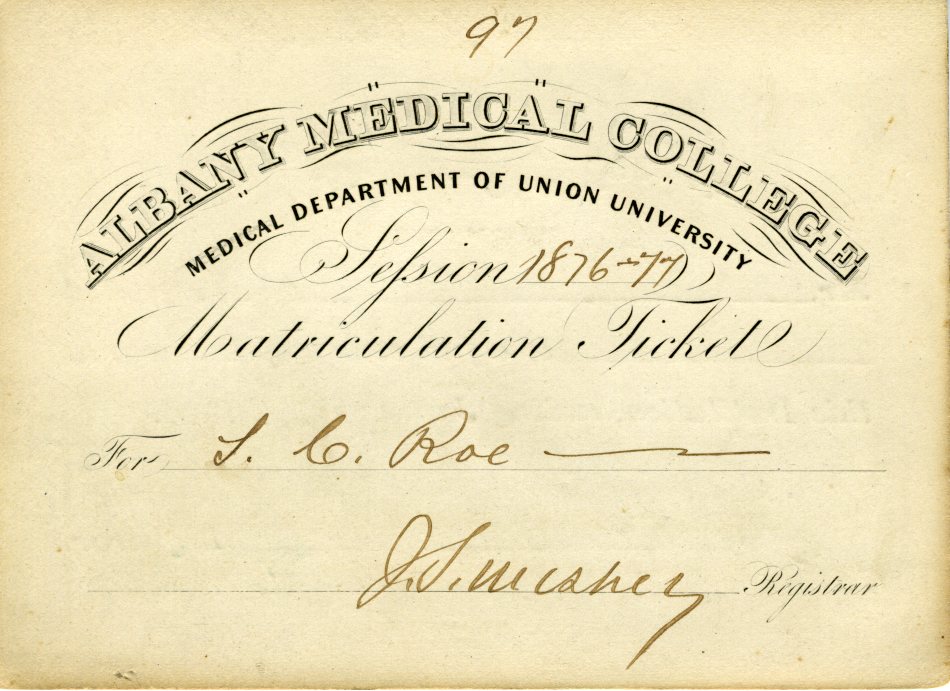 97
ALBANY MEDICAL COLLEGE
MEDICAL DEPARTMENT OF UNION UNIVERSITY
Session 1876-77
Matriculation Ticket
For S. C. Roe
J. S. Mosher Registrar